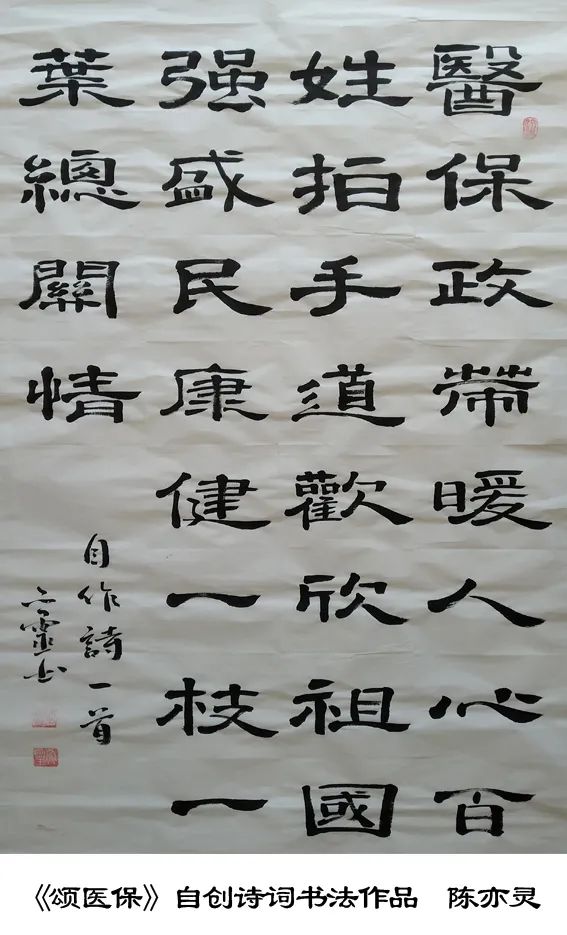 醫保政帶暖人心百
姓拍手道歡欣祖國
强盛民康健一枝一
葉總關情
自作詩一首
亦靈书
《颂医保》自创诗词书法作品 陈亦灵